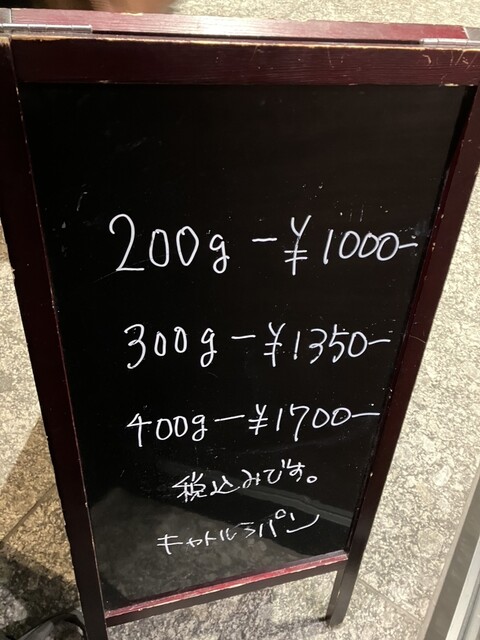 200g-¥1000-
300g-¥1350-
400g-¥1700-
税込みです。
キャトルラパン